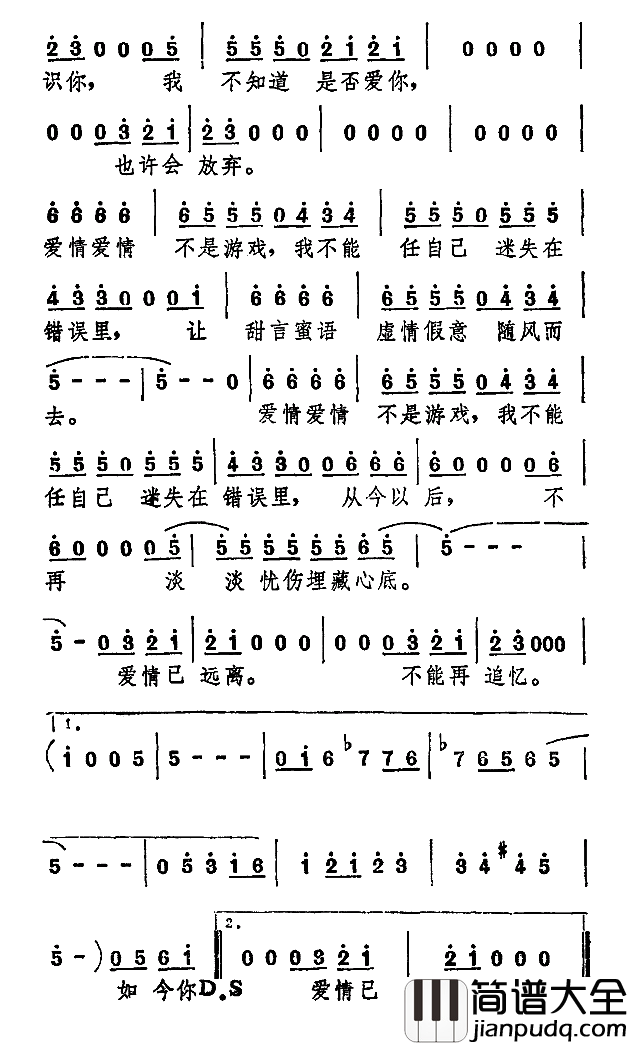 2̣̇ 3̇ 0 0 0 5̇ | 5̇ 5̇ 5̇ 0 2̇ 1̇ 2̇ 1̇ | 0 0 0 0 |
识你， 我 不知道 是否爱你，
0 0 0 3̇ 2̇ 1̇ | 2̇ 3̇ 0 0 0 | 0 0 0 0 | 0 0 0 0 |
也许会 放弃。
6̇ 6̇ 6̇ 6̇ | 6̇ 5̇ 5̇ 5̇ 0 4̇ 3̇ 4̇ | 5̇ 5̇ 5̇ 0 5̇ 5̇ 5̇ |
爱情爱情 不是游戏，我不能 任自己 迷失在
4̇ 3̇ 3̇ 0 0 0 0 1̇ | 6̇ 6̇ 6̇ 6̇ | 6̇ 5̇ 5̇ 5̇ 0 4̇ 3̇ 4̇ |
错误里， 让 甜言蜜语 虚情假意 随风而
5̇ - - - | 5̇ - - 0 | 6̇ 6̇ 6̇ 6̇ | 6̇ 5̇ 5̇ 5̇ 0 4̇ 3̇ 4̇ |
去。 爱情爱情 不是游戏，我不能
5̇ 5̇ 5̇ 0 5̇ 5̇ 5̇ | 4̇ 3̇ 3̇ 0 0 6̇ 6̇ 6̇ | 6̇ 0 0 0 0 6̇ |
任自己 迷失在 错误里， 从今以 后， 不
6̇ 0 0 0 0 5̇ | 5̇ 5̇ 5̇ 5̇ 5̇ 5̇ 6̇ 5̇ | 5̇ - - - |
再 淡 淡 忧伤埋藏心底。
5̇ - 0 3̇ 2̇ 1̇ | 2̇ 1̇ 0 0 0 | 0 0 0 3̇ 2̇ 1̇ | 2̇ 3̇ 0 0 0 |
爱情已 远离。 不能再 追忆。
1.
(1̇ 0 0 5 | 5 - - - | 0 1̇ 6 ♭7 7 6 | ♭7 6 5 6 5 |
5 - - - | 0 5̇ 3̇ 1̇ 6 | 1̇ 2̇ 1̇ 2̇ 3̇ | 3̇ 4̇ #4̇ 5̇ |
5̇ - ) 0 5 6 1̇ ‖ 2. 0 0 0 3̇ 2̇ 1̇ | 2̇ 1̇ 0 0 0
如 今你D.S 爱情已
简谱大全
jianpudq.com